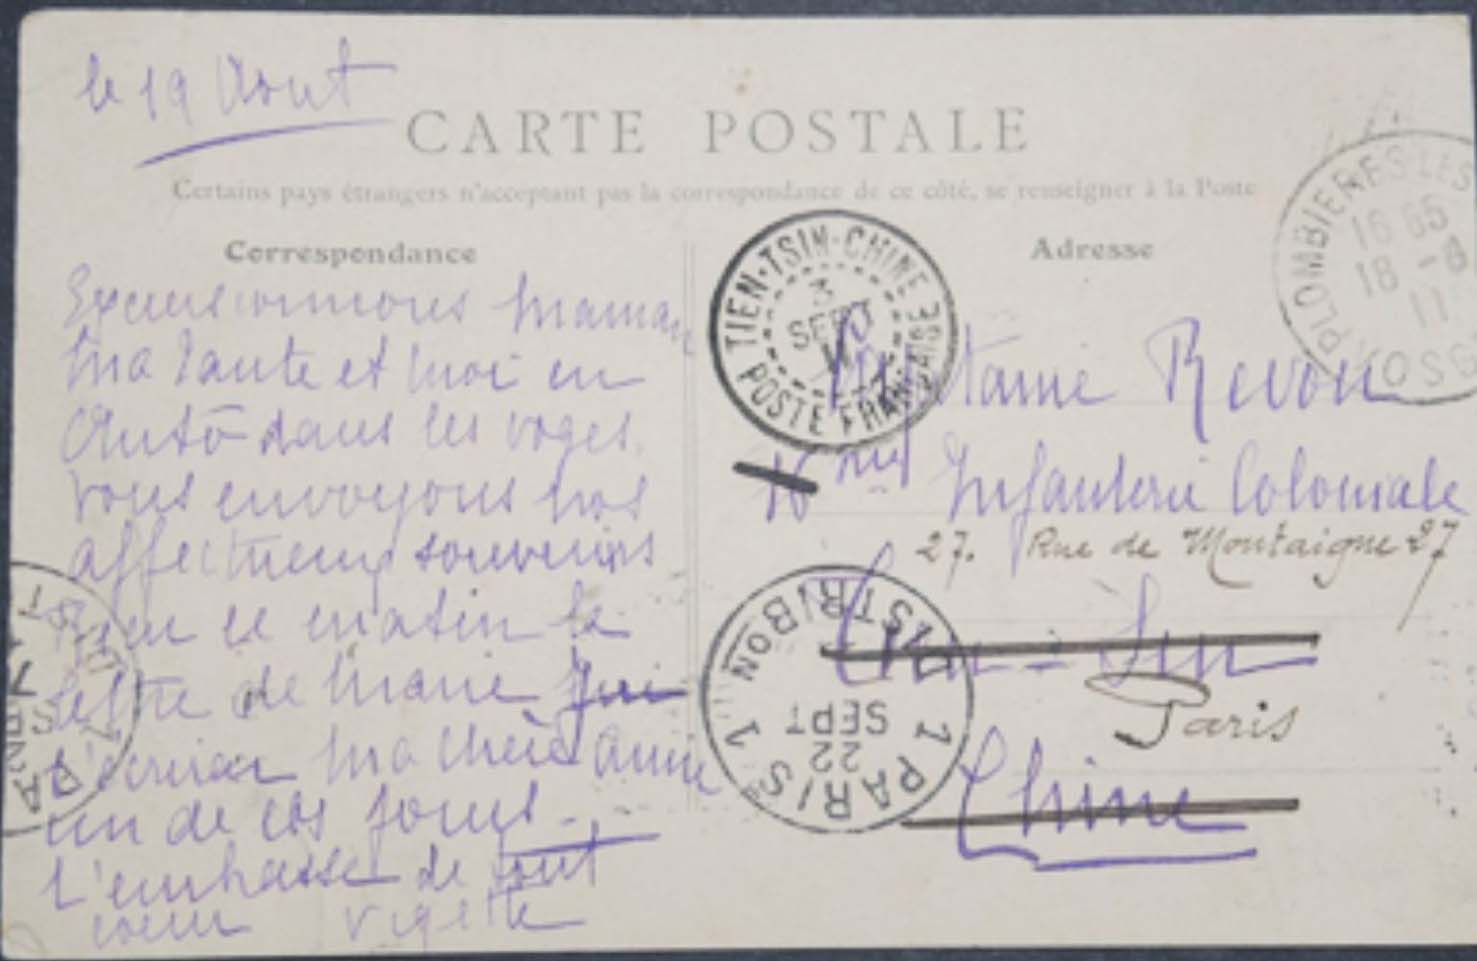 le 19 Aout
CARTE POSTALE
Certains pays étrangers n'acceptent pas la correspondance de ce côté, se renseigner à la Poste
Correspondance
Excursionnons Maman
ma tante et moi en
Auto dans les Voges.
Vous envoyons nos
affectueux souvenirs
ce matin la
lettre de Marie
ma chère Annie
un de ces jours.
t'embrasse de tout
coeur
Adresse
TIEN-TSIN-CHINE
3
SEPT
11
POSTE FRANÇAISE
PLOMBIERES LES
16 05
18 -8
11
VOSGES
Madame Revou
16 Infanterie Coloniale
27. Rue de Montaigne 27
Paris
Chine
PARIS 1
DISTRIBON
22
SEPT